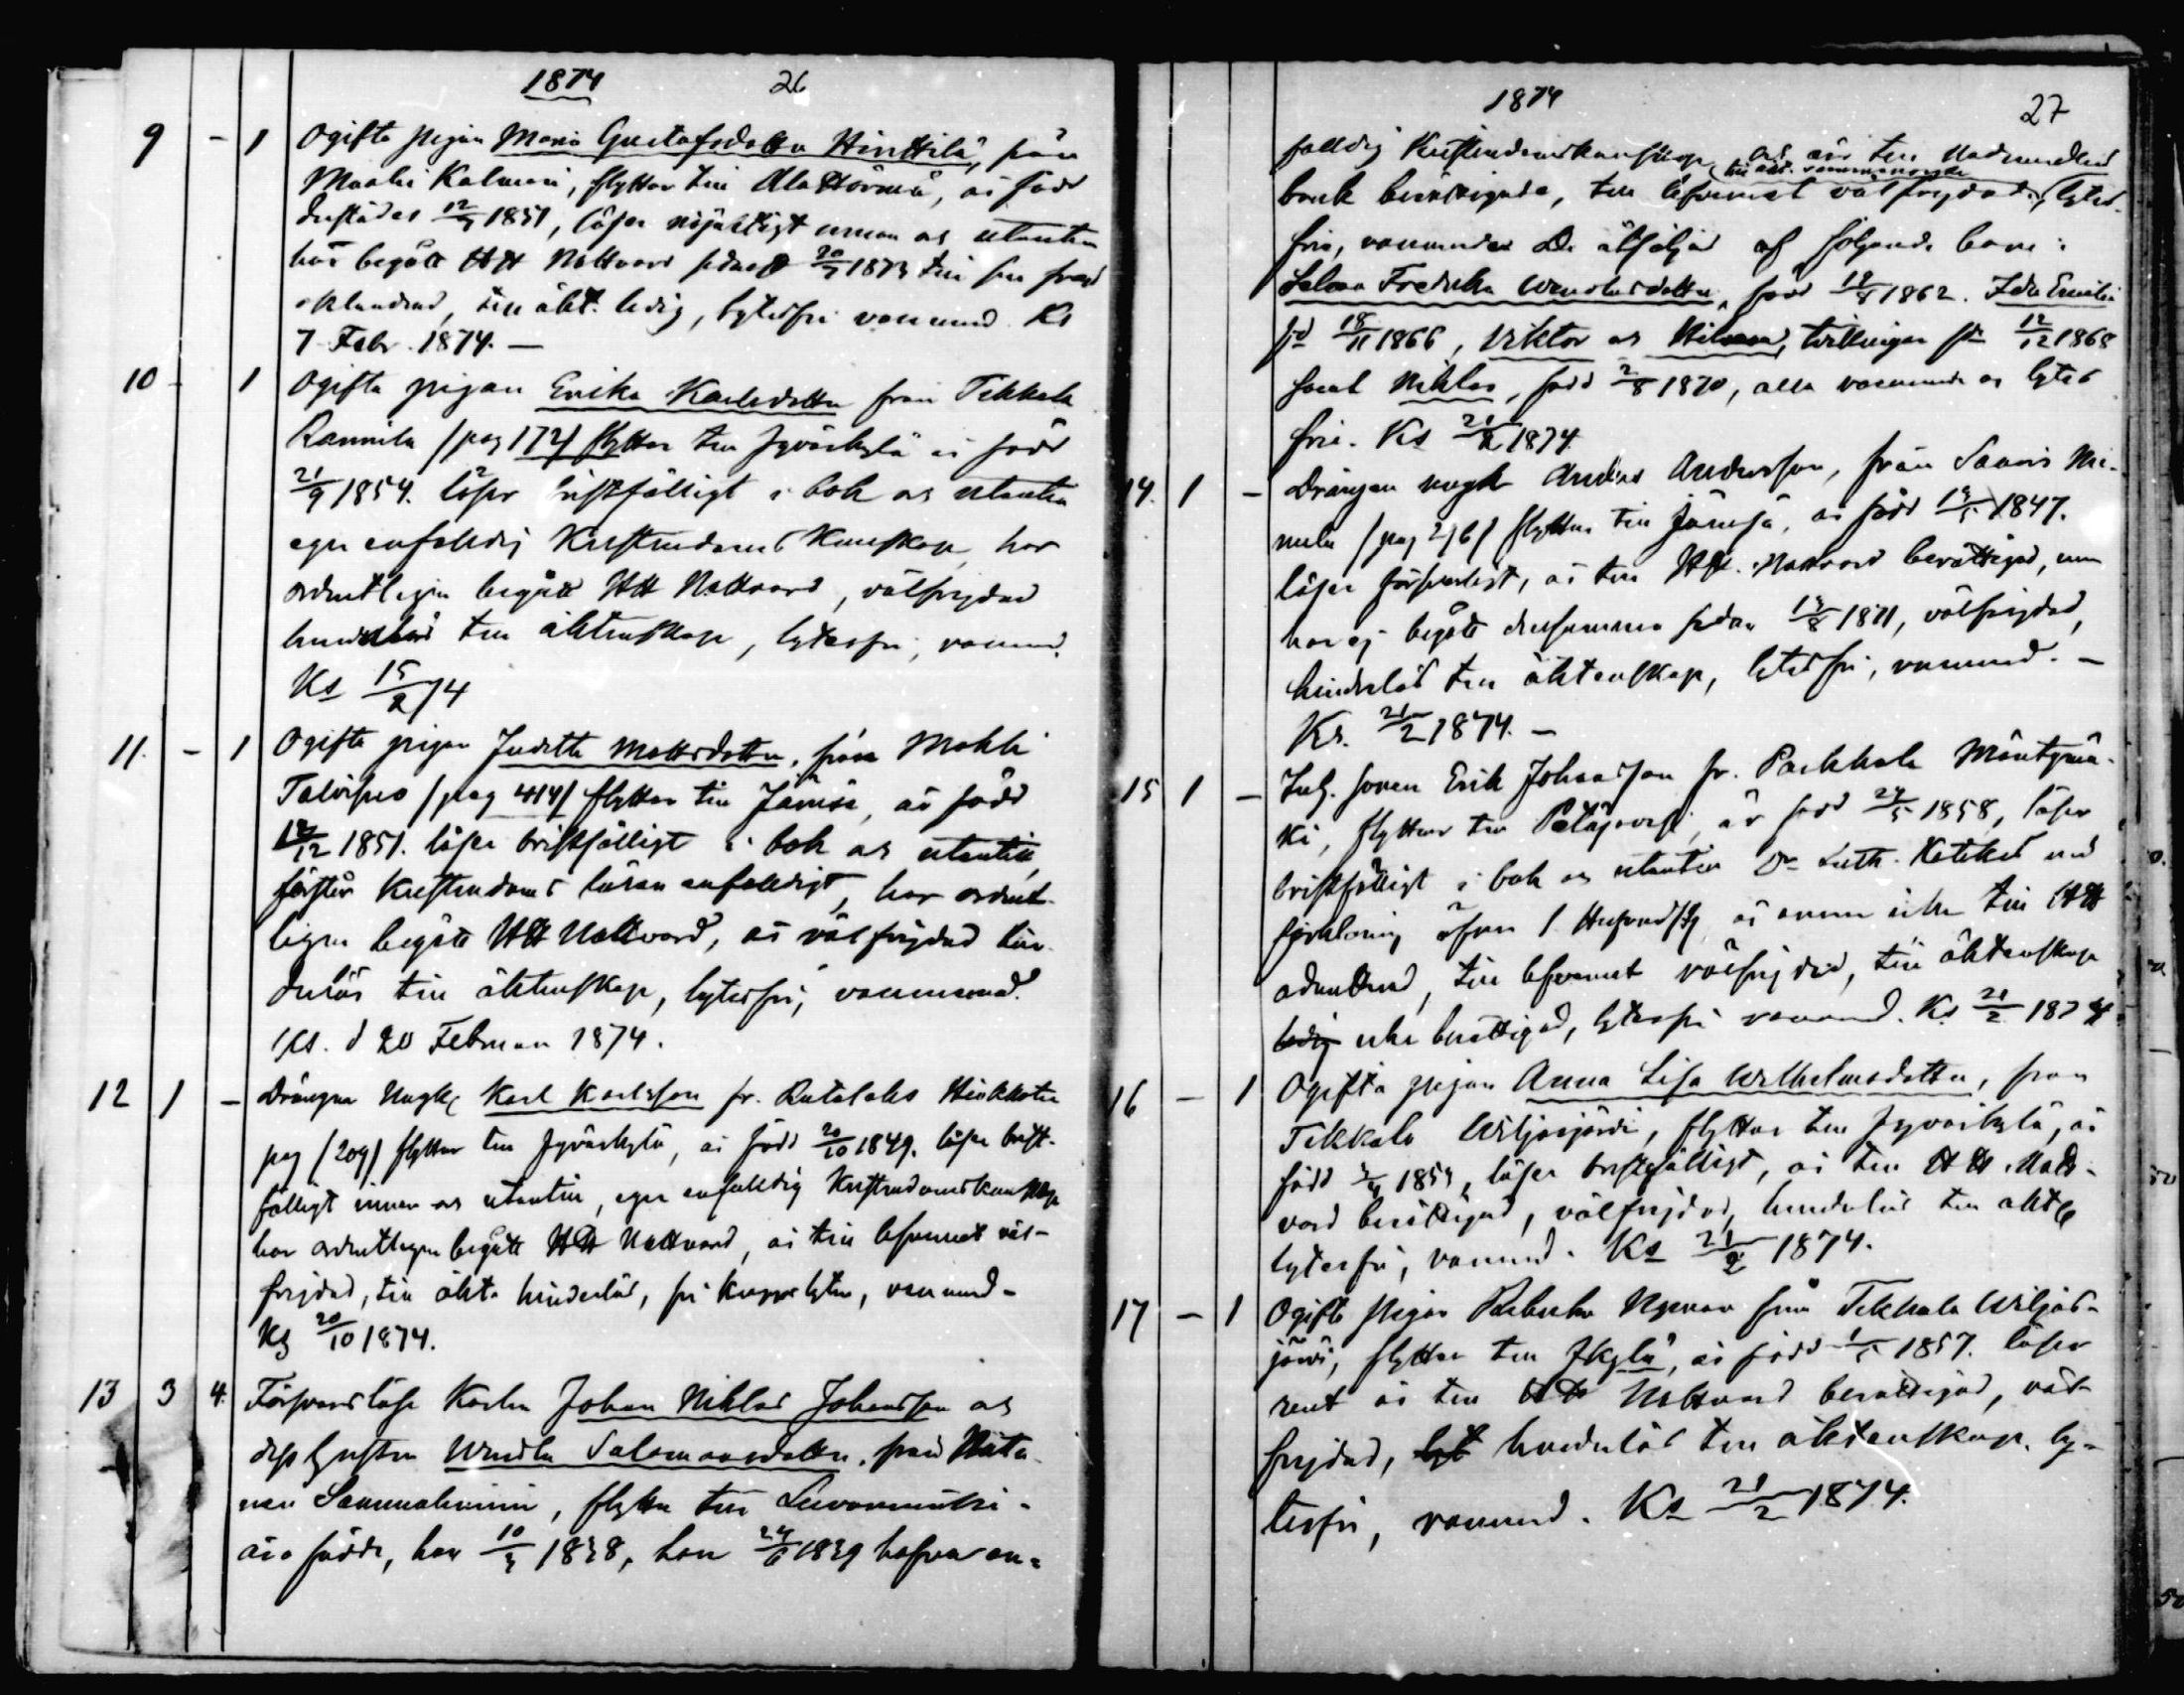 1874 26
9 - 1 Ogifta pigan Maria Gustafsdotter Hinttilä, från
Muuhi Kalmari, flyttar till Alahärmä, är född
derstädes 12/7 1851, läser nöjaktigt innan och utantill
har begått HH Nattvard sednast 20/7 1873 till sin frejd
oklandrad, till äkt. ledig, lytesfri vaccinerad. Ks
7 Febr. 1874. —
10 - 1 Ogifta pigan Erika Karlsdotter från Tikkala
Rannila (pag 172) flyttar till Jyväskylä är född
21/9 1854. läser bristfälligt i bok och utantill
eger enfaldig Kristendoms Kunskap, har
ordentligen begått HH Nattvard, välfrejdad
hinderlös till äktenskap, lytesfri, vaccinerad.
Ks 15/2 74
11. - 1 Ogifta pigan Juditha Mattsdotter, från
(pag 414) flyttar till Jämsä, är född
12 1851. läser bristfälligt i bok och utantill,
förstår Kristendoms läran enfaldigt, har ordent-
ligen begått HH Nattvard, är välfrejdad hin-
derlös till äktenskap, lytesfri, vaccinerad.
Ks. d 20 Februari 1874.
12 1 - Drängen Ynglg Karl Karlsson fr. Rutalaks
pag (209) flyttar till Jyväskylä, är född 20/10 1849. läser brist-
fälligt innan och utantill, eger enfaldig Kristendomskunskap
har ordentligen begått HH Nattvard, är till lefvernet väl-
frejdad, till äkt. hinderlös, fri kroppslyten, vaccinerad -
Ks 20/10 1874.
13 3 4. Försvarslöse Karlen Johan Niklas Johansson och
dess hustru Wendla Salomonsdotter, från
flytta till
äro födde, han 10/3 1838, hon 24/6 1839 hafva en-
1874 27
faldig Kristendomskunskap, och äro till Nadvardens
bruk berättigade, till lefvernet välfrejdade, lytes-
fria, vaccinerade. De åtföljas af följande barn:
Selma Fredrika född 18/8 1862. Ida Emilia
fd 18/11 1866, Viktor och tvillingar fdd 12/12 1868
samt Niklas, född 2/8 1870, alla vaccinerade och lytes
fria. Ks 21/2 1874.
14. 1 - Drängen ynglg Anders Andersson, från
(pag 216) flyttar till Jämsä, är född 1847.
läser försvarligt, är till HH. Nattvard berättigad, men
har ej begått densamma sedan 1871, välfrejdad,
hinderlös till äktenskap, lytesfri, vaccinerad. —
Ks. 21/2 1874. —
15 1 - sonen Erik Johansson fr. Parkkola Mäntymä-
ki, flyttar till Petäjävesi, är född 24/5 1858, läser
bristfälligt i bok och utantill Dr Luth. Katekes med
förklaring öfver 1 är ännu icke till HH
admitterad, till lefvernet välfrejdad, till äktenskap
ledig icke berättigad, lytesfri vaccinerad. Ks 21/2 1874
16 - 1 Ogifta pigan Anna Lisa Wilhelmsdotter, från
Tikkala Wiljasjärvi, flyttar till Jyväskylä, är
född 1853, läser bristfälligt, är till HH Natt-
vard berättigad, välfrejdad, hinderlös till äkt.
lytesfri, vaccinerad. Ks 21/2 1874.
17 - 1 Ogifta pigan från Tikkala Wiljas-
järvi, flyttar till Jkylä, är född 1857. läser
rent är till HH Nattvard berättigad, väl-
frejdad, lyt hinderlös till äktenskap, ly-
tesfri, vaccinerad. Ks 21/2 1874.